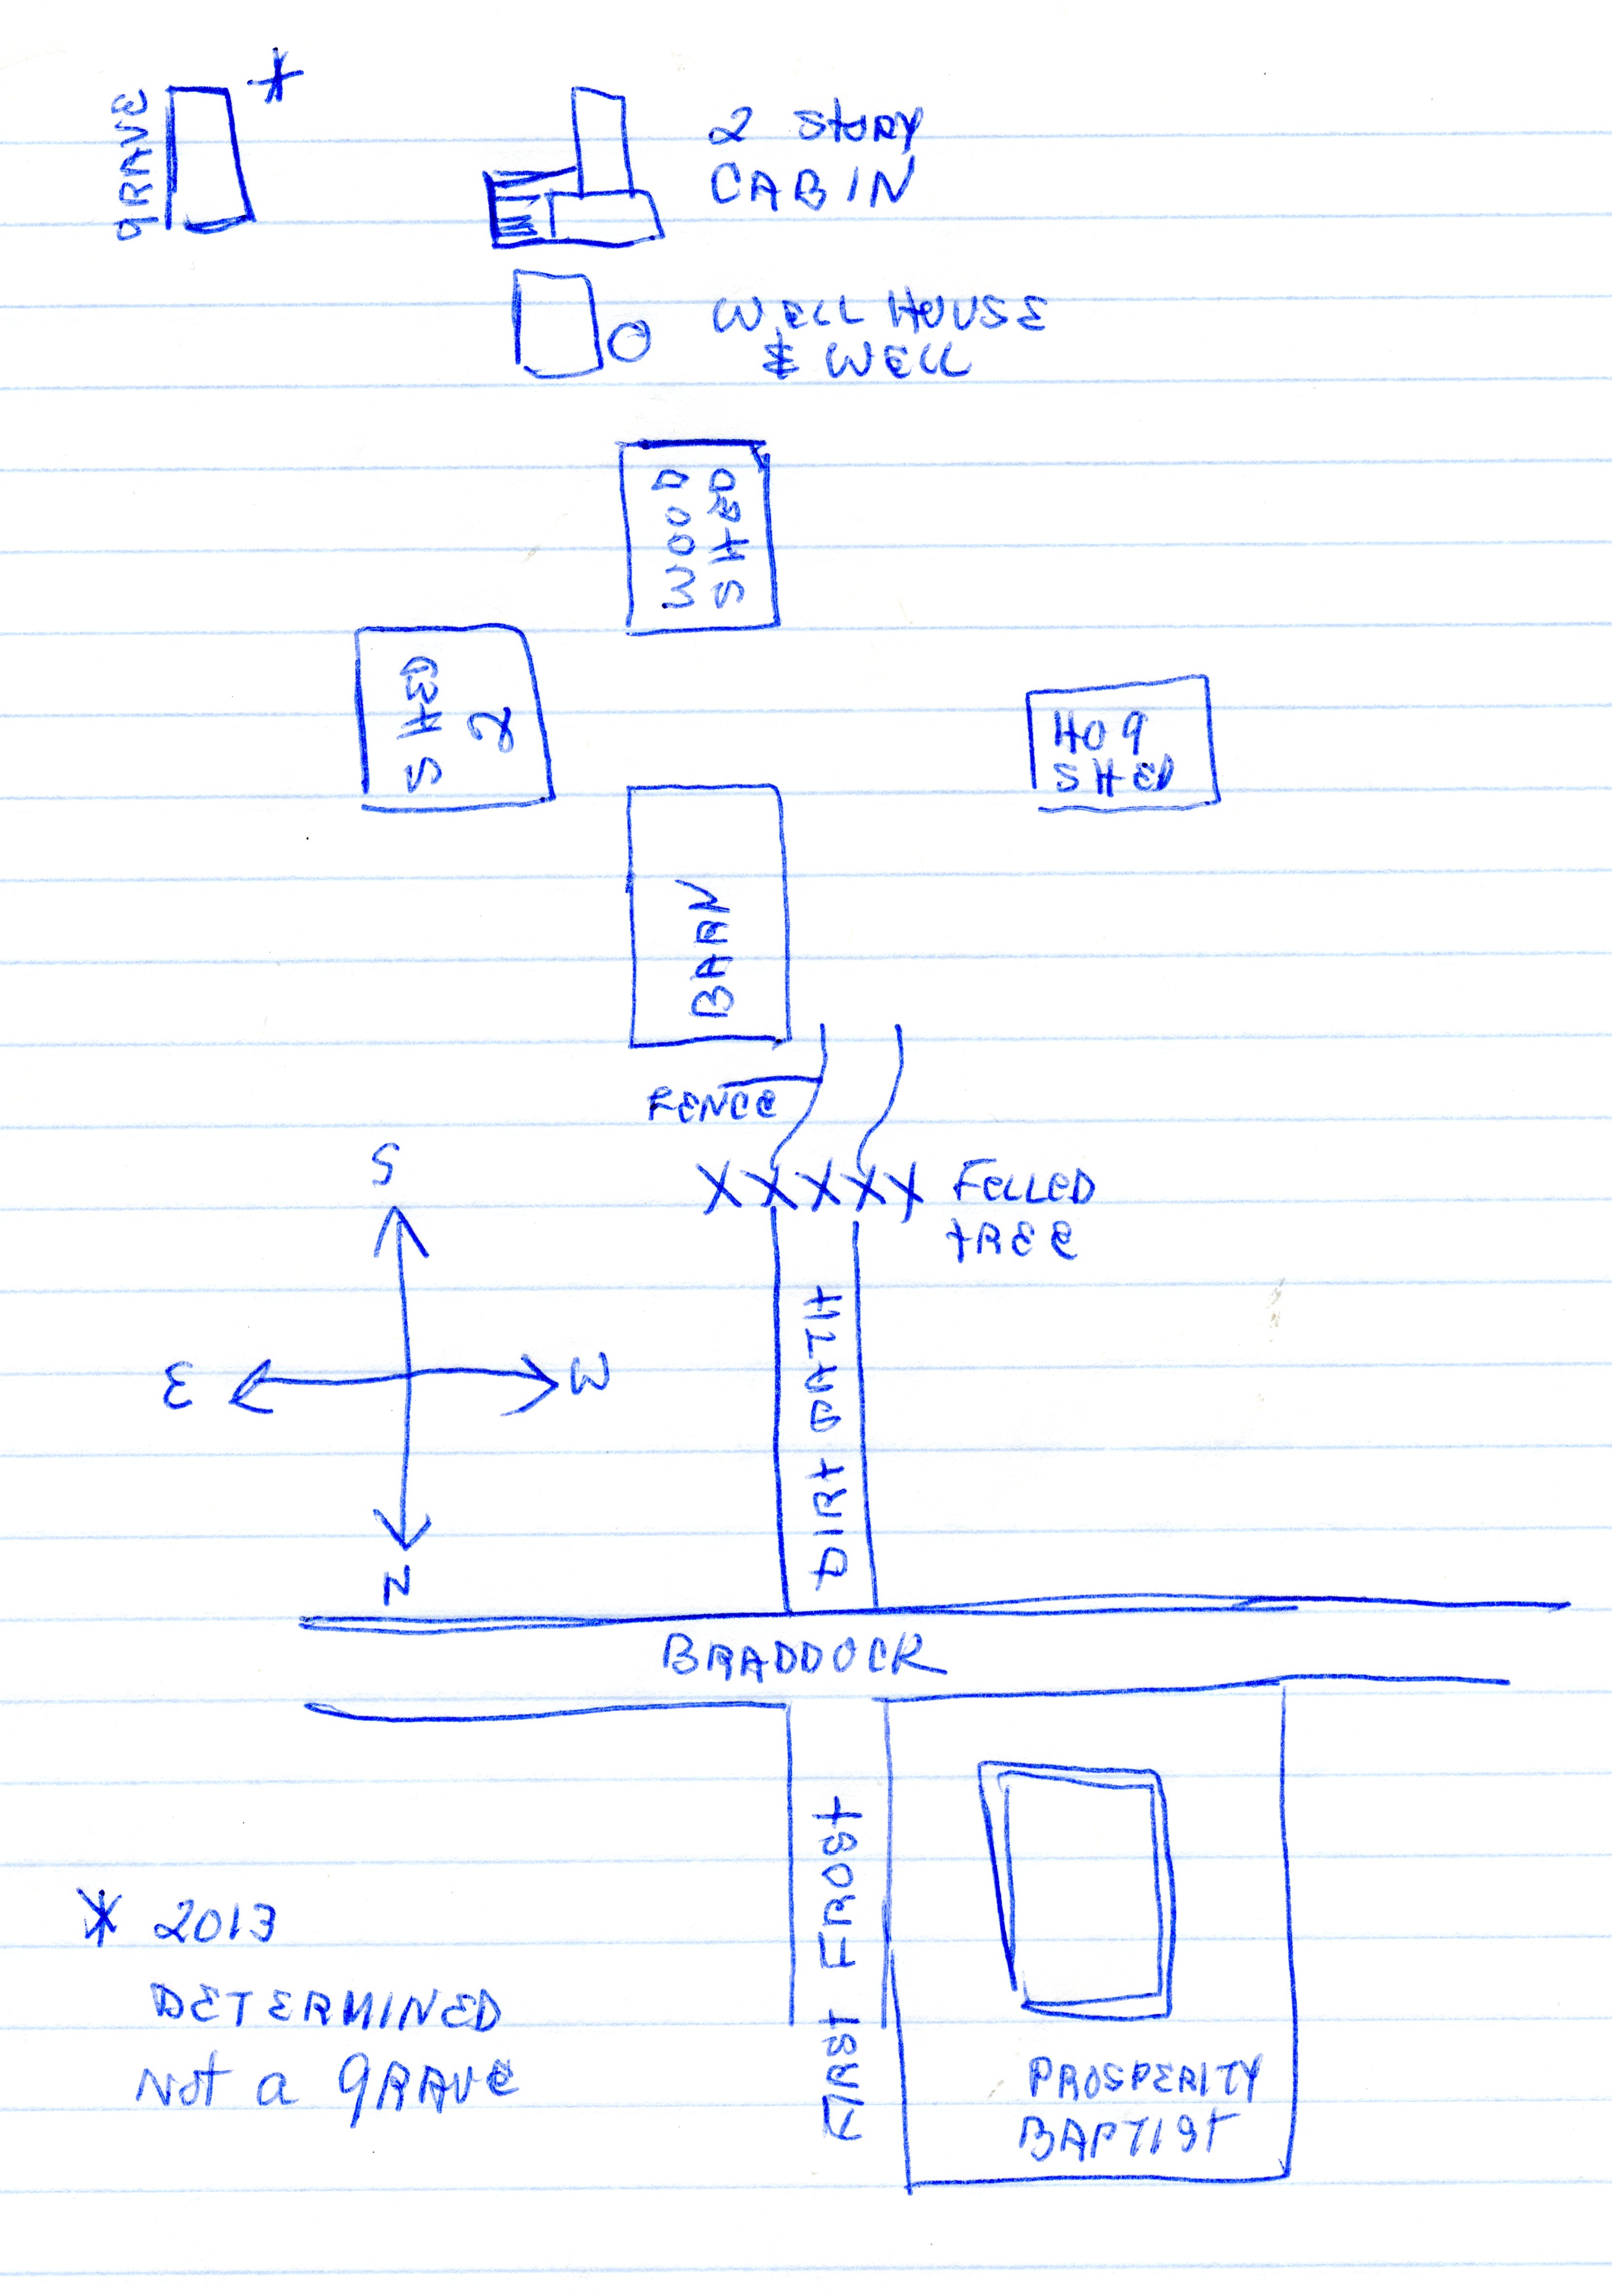 GRAVE *
2 STORY
CABIN
WELL HOUSE
& WELL
WOOD
SHED
SHED
2
HOG
SHED
BARN
FENCE
S
XXXXX FELLED
TREE
E W
DIRT PATH
N
BRADDOCK
FIRST FROST
* 2013
DETERMINED
NOT a GRAVE
PROSPERITY
BAPTIST